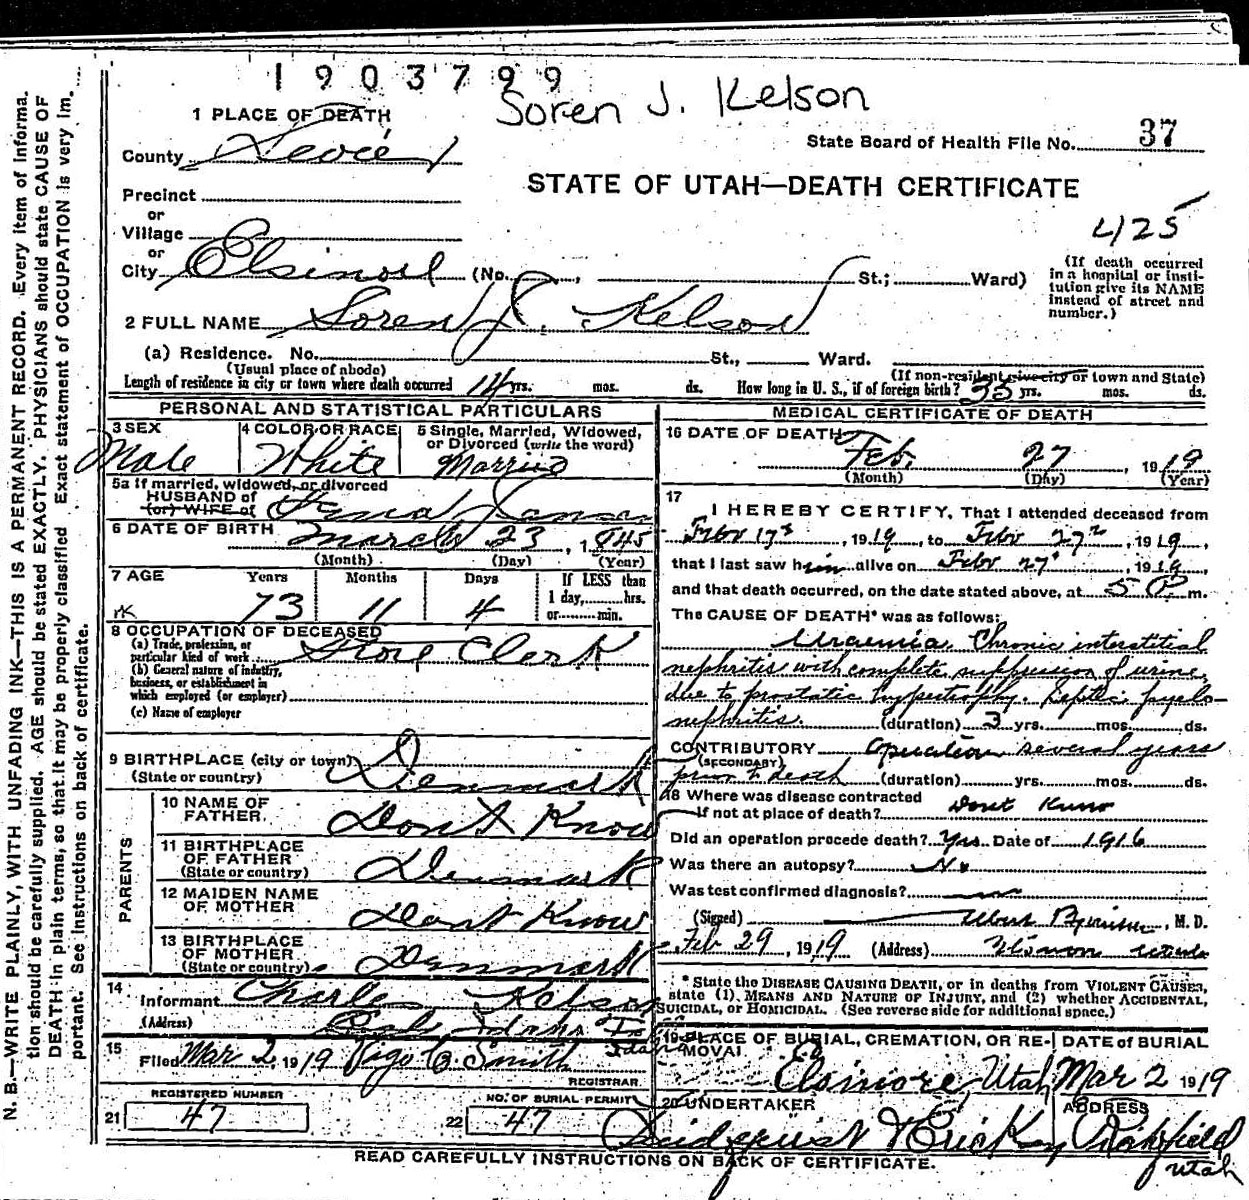 1903799
Soren J. Kelson
1 PLACE OF DEATH
County Sevier
State Board of Health File No. 37
STATE OF UTAH—DEATH CERTIFICATE
Precinct
or
Village
425
or
City Elsinore (No. , St.; Ward)
(If death occurred in a hospital or institution give its NAME instead of street and number.)
2 FULL NAME Soren J. Kelson
(a) Residence. No. St., Ward.
(Usual place of abode) (If non-resident give city or town and State)
Length of residence in city or town where death occurred 14 yrs. mos. ds. How long in U. S., if of foreign birth? 35 yrs. mos. ds.
PERSONAL AND STATISTICAL PARTICULARS
3 SEX Male
4 COLOR OR RACE White
5 Single, Married, Widowed, or Divorced (write the word)
Married
5a If married, widowed, or divorced
HUSBAND of
(or) WIFE of
6 DATE OF BIRTH March 23, 1845
(Month) (Day) (Year)
7 AGE Years Months Days If LESS than
73 11 4 1 day, hrs.
or min.
8 OCCUPATION OF DECEASED
(a) Trade, profession, or
particular kind of work Store Clerk
(b) General nature of industry,
business, or establishment in
which employed (or employer)
(c) Name of employer
9 BIRTHPLACE (city or town) Denmark
(State or country)
PARENTS
10 NAME OF FATHER Don't Know
11 BIRTHPLACE OF FATHER Denmark
(State or country)
12 MAIDEN NAME OF MOTHER Dont Know
13 BIRTHPLACE OF MOTHER Denmark
(State or country)
14 Informant Charles Kelson
(Address) Idaho
15 Filed Mar 2, 1919 Vigo C. Smith
REGISTRAR
REGISTERED NUMBER
21 47
NO. OF BURIAL PERMIT
22 47
MEDICAL CERTIFICATE OF DEATH
16 DATE OF DEATH
Feb. 27, 1919
(Month) (Day) (Year)
17
I HEREBY CERTIFY, That I attended deceased from
Febr 17, 1919, to Febr 27, 1919,
that I last saw him alive on Febr 27, 1919,
and that death occurred, on the date stated above, at 5 P. m.
The CAUSE OF DEATH* was as follows:
Uraemia. Chronic interstitial
nephritis with complete suppression of urine,
due to prostatic hypertrophy. Septic pyelo-
nephritis. (duration) 3 yrs. mos. ds.
CONTRIBUTORY Operation several years
(SECONDARY)
prior to death (duration) yrs. mos. ds.
18 Where was disease contracted
If not at place of death? Dont Know
Did an operation precede death? Yes Date of 1916
Was there an autopsy? No
Was test confirmed diagnosis?
(Signed) , M. D.
Feb 29, 1919 (Address) Elsinore Utah
*State the DISEASE CAUSING DEATH, or in deaths from VIOLENT CAUSES,
state (1) MEANS AND NATURE OF INJURY, and (2) whether ACCIDENTAL,
SUICIDAL, or HOMICIDAL. (See reverse side for additional space.)
19 PLACE OF BURIAL, CREMATION, OR REMOVAL
Elsinore Utah
DATE of BURIAL
Mar 2 1919
20 UNDERTAKER
ADDRESS
Richfield
Utah
READ CAREFULLY INSTRUCTIONS ON BACK OF CERTIFICATE.
N. B.—WRITE PLAINLY, WITH UNFADING INK—THIS IS A PERMANENT RECORD. Every item of informa-
tion should be carefully supplied. AGE should be stated EXACTLY. PHYSICIANS should state CAUSE OF
DEATH in plain terms, so that it may be properly classified. Exact statement of OCCUPATION is very im-
portant. See instructions on back of certificate.